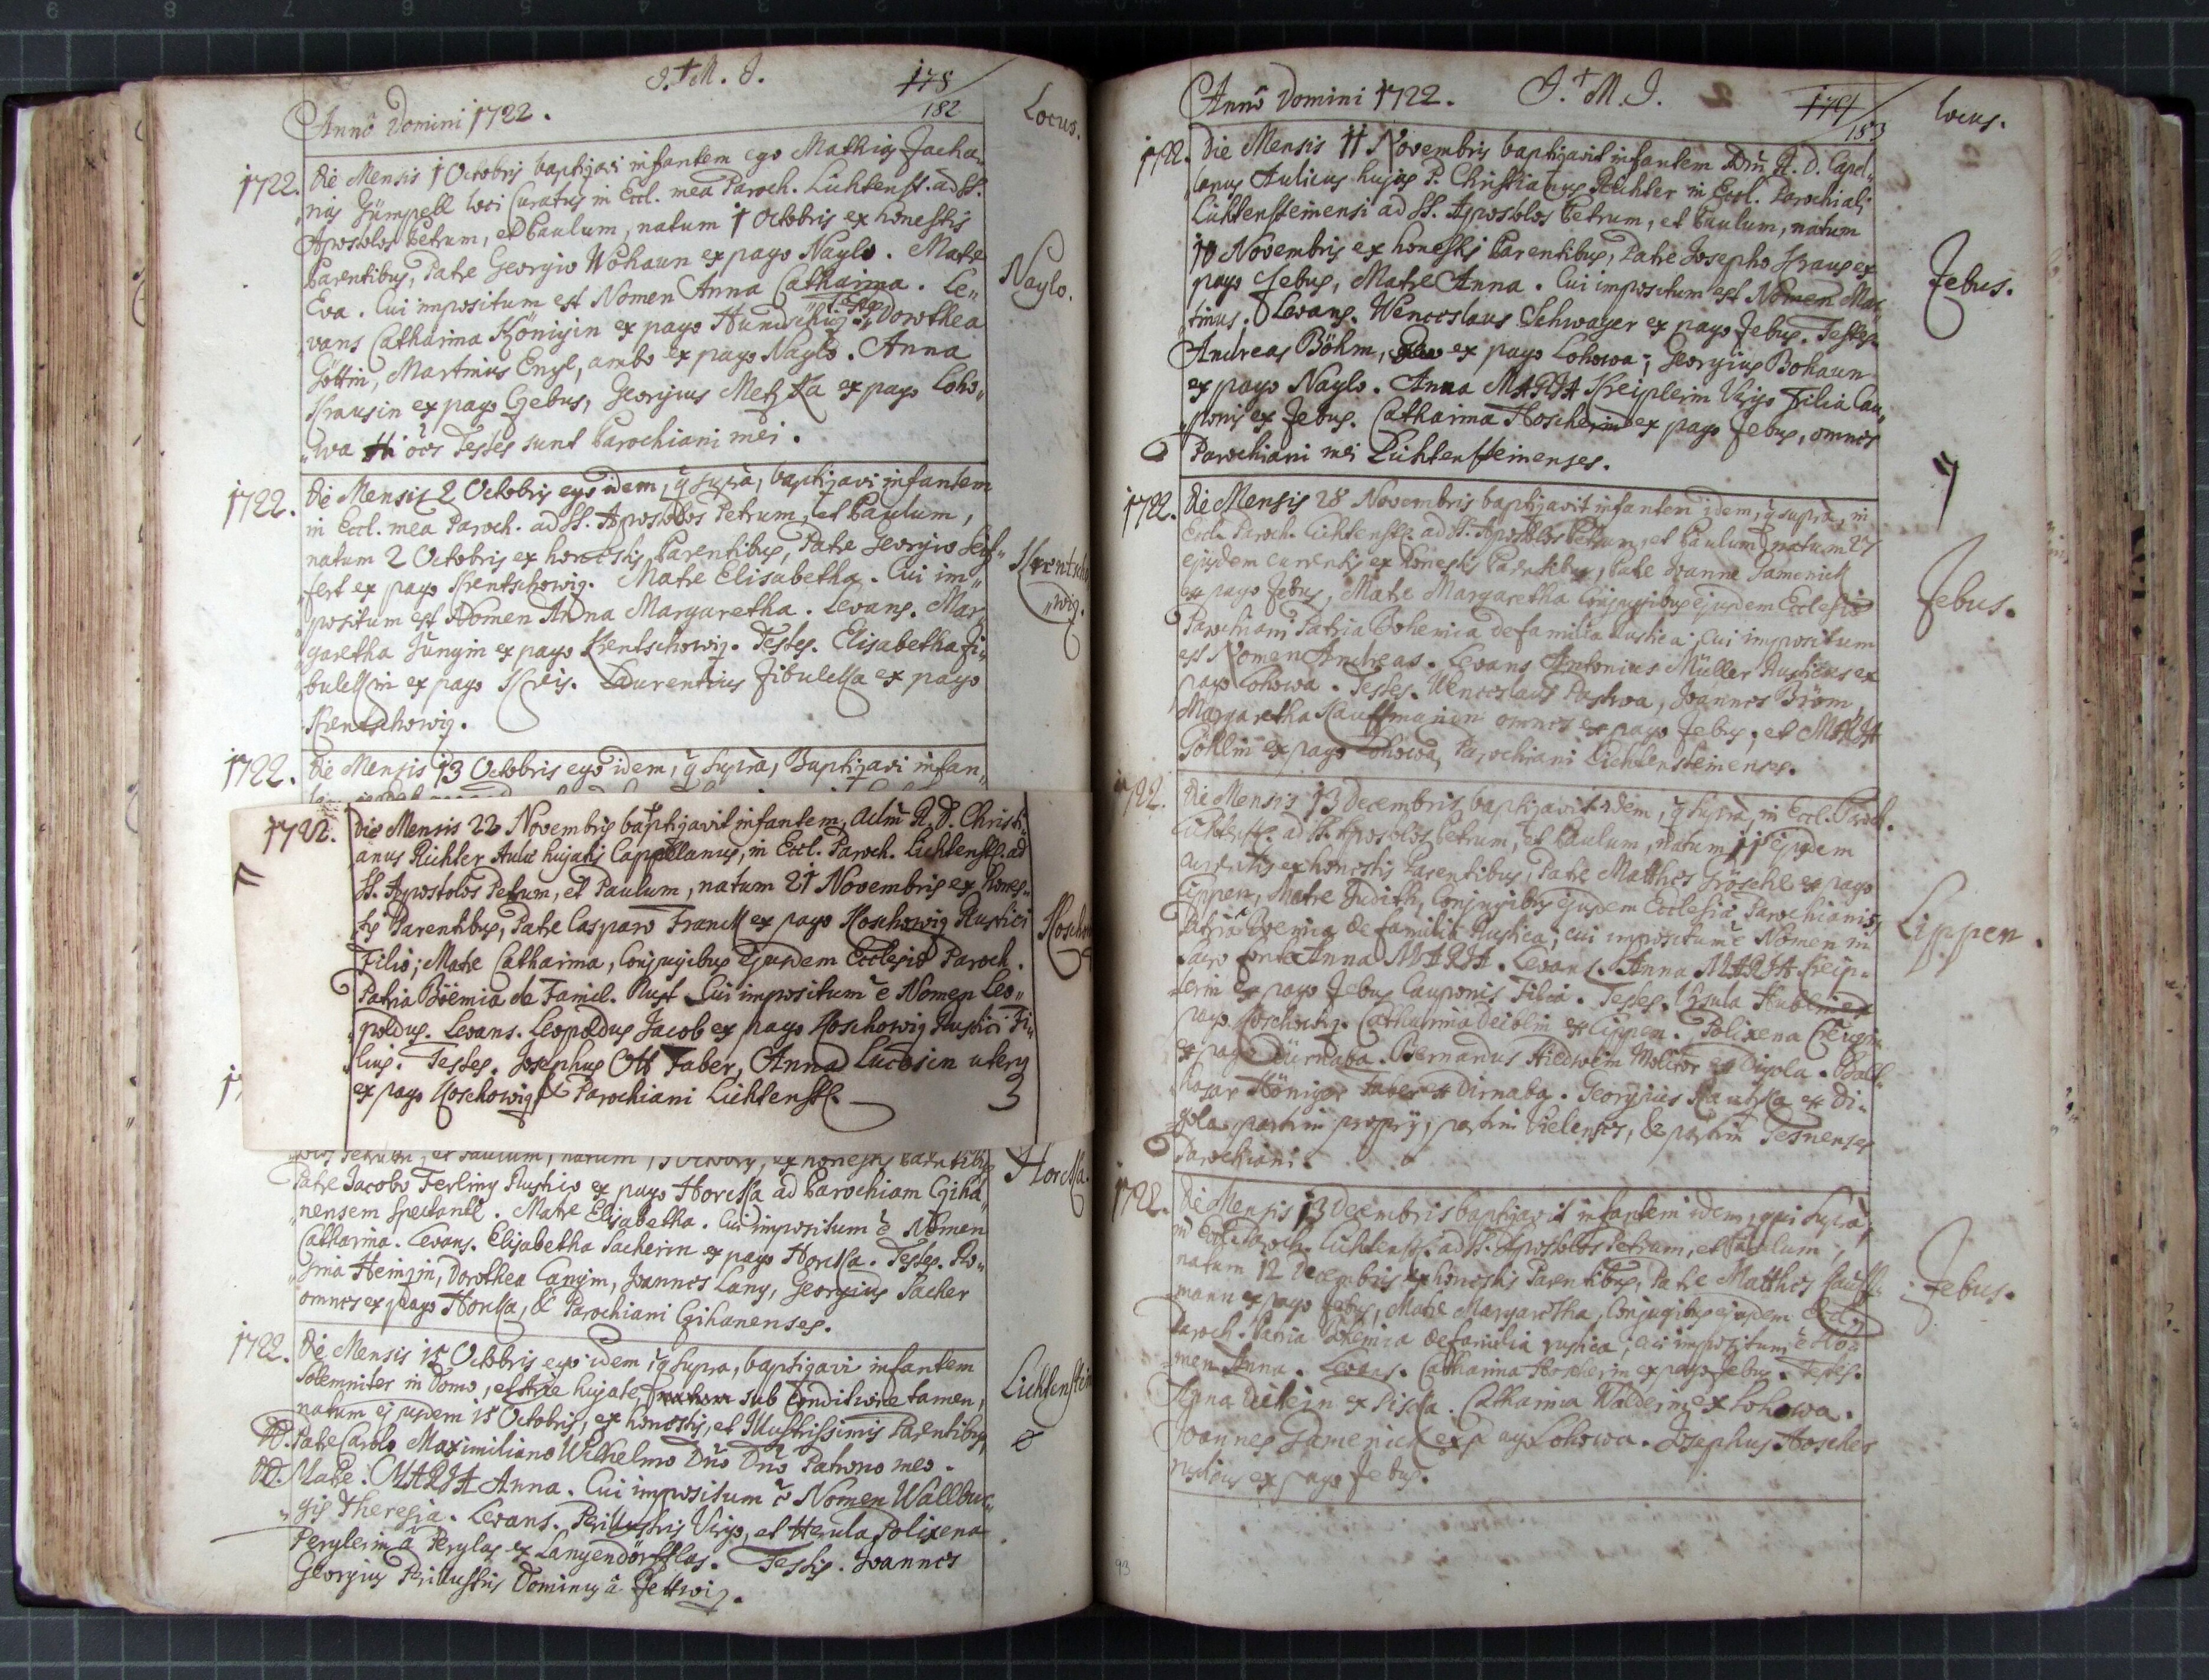 J. M. J.
178
182
Locus.
Anno Domini 1722.
1722. Die Mensis 1 Octobris baptizavi infantem ego Mathias Zacha„
„rias Gümpell loci Curatus in Eccl. mea Paroch. Lichtenst. ad SS.
Apostolos Petrum, et Paulum, natum 1 Octobris ex honestis
Parentibus, Patre Georgio Wohaun ex pago Naglo. Matre
Naglo.
Eva. Cui impositum est Nomen Anna Catharina. Le„
„vans Catharina Königin ex pago Hundschitz. Testes Dorothea
Göttin, Martinus Engl, ambo ex pago Naglo. Anna
Krausin ex pago Gebus, Georgius Metzka ex pago Loho„
„wa Hi oes Testes sunt Parochiani mei.
1722. Die Mensis 2 Octobris ego idem, q supra, baptizavi infantem
in Eccl. mea Paroch. ad SS. Apostolos Petrum, et Paulum,
natum 2 Octobris ex honestis Parentibus, Patre Georgio Seif„
„fert ex pago Krentschowig. Matre Elisabetha. Cui im„
Krentscho
„wig.
„positum est Nomen Anna Margaretha. Levans. Mar„
„garetha Jungin ex pago Krentschowig. Testes. Elisabetha Zi„
„bulckin ex pago Kreis. Laurentius Zibulcka ex pago
Krentschowig.
1722. Die Mensis 13 Octobris ego idem, q supra, Baptizavi infan„
1722. Die Mensis 22 Novembris baptizavit infantem, Adm R. D. Christi„
„anus Richter Aulae hujatis Cappellanus, in Eccl. Paroch. Lichtenst. ad
SS. Apostolos Petrum, et Paulum, natum 21 Novembris ex hones„
„tis Parentibus, Patre Casparo Franck ex pago Koschowig Rustici
Filio; Matre Catharina, Conjugibus ejusdem Ecclesiae Paroch.
Patria Böemia de Famil. Rust. Cui impositum e Nomen Leo„
„poldus. Levans. Leopoldus Jacob ex pago Koschowig Rustici Fi„
„lius. Testes. Josephus Ott Faber, Anna Lucasin uterq
ex pago Koschowig, & Parochiani Lichtenst.
3
Petrum, et Paulum, natum 13 Octobris, ex honestis Parentibus
Horcka.
Patre Jacobo Ferling Rustico ex pago Horcka ad Parochiam Cziha„
„nensem spectante. Matre Elisabetha. Cui impositum e Nomen
Catharina. Levans. Elisabetha Sacherin ex pago Horcka. Testes. Ro„
„sina Heinzin, Dorothea Langin, Joannes Lang, Georgius Sacher
omnes ex pago Horcka, & Parochiani Czihanenses.
1722. Die Mensis 15 Octobris ego idem, q supra, baptizavi infantem
Solemniter in Domo, et Arce hujate, sub Conditione tamen,
Lichtenstein
natum ejusdem 15 Octobris, ex honestis, et Illustrissimis Parentibus,
D. Patre Carolo Maximiliano Wilhelmo Dno Dno Patrono meo.
D. Matre. MARIA Anna. Cui impositum e Nomen Wallbur„
„gis Theresia. Levans. Perillustris Virgo, et Herula Polixena
Perglerin â Perglas ex Langendörfflas. Testis. Joannes
Georgius Prillustris Dominus â Zettwiz.
Anno Domini 1722. J. M. J.
179
183
locus.
1722. Die Mensis 11 Novembris baptizavit infantem Adm R. D. Capel„
„lanus Aulicus hujas P. Christianus Richter in Eccl. Parochiali
Lichtensteinensi ad SS. Apostolos Petrum, et Paulum, natum
10 Novembris ex honestis Parentibus, Patre Josepho Kraus ex
pago Jebus, Matre Anna. Cui impositum est Nomen Mar„
Jebus.
„tinus. Levans. Wenceslaus Schwager ex pago Jebus. Testes.
Andreas Böhm, ex pago Lohowa; Georgius Bohaun
ex pago Naglo. Anna MARIA Kreiplerin Virgo Filia Cau„
„ponis ex Jebus. Catharina Hoscherin ex pago Jebus, omnes
Parochiani mei Lichtensteinenses.
1722. Die Mensis 28 Novembris baptizavit infantem idem, q supra, in
Eccl. Paroch. Lichtenst. ad SS. Apostolos Petrum, et Paulum, natum 27
ejusdem currentis ex honestis Parentibus, Patre Joanne Gamenick
ex pago Jebus, Matre Margaretha Conjugibus ejusdem Ecclesiae
Jebus.
Parochiani Patria Bohemica de familia Rustica; cui impositum
est Nomen Andreas. Levans Antonius Müller Rusticus ex
pago Lohowa. Testes. Wenceslaus Paschwa, Joannes Bröm,
Margaretha Kauffmanin omnes ex pago Jebus; et MARIA
Göhlin ex pago Lohowa, Parochiani Lichtensteinenses.
1722. Die Mensis 13 Decembris baptizavit idem, q supra, in Eccl. Paroch.
Lichtenst. ad SS. Apostolos Petrum, et Paulum, natum 11 ejusdem
currentis ex honestis Parentibus, Patre Matthes Gröschl ex pago
Lippen, Matre Judith, Conjugibus ejusdem Ecclesiae Parochianis,
Lippen.
Patria Boemia de familia Rustica; cui impositum e Nomen in
sacro fonte Anna MARIA. Levans. Anna MARIA Kreip„
„lerin ex pago Jebus Cauponis Filia. Testes. Ursula Hublin ex
pago Koschowig. Catharina Deiblin ex Lippen. Polixena
ex pago Dürnaba. Bernardus Hildwein Molitor ex Digola. Balt„
„hasar Königer Faber ex Dirnaba. Georgius Kautzka ex Di„
„gola partim proprij, partim Vielenses, & partim Tesnenses
Parochiani.
1722. Die Mensis 13 Decembris baptizavit infantem idem, qui supra,
in Eccl. Paroch. Lichtenst. ad SS. Apostolos Petrum, et Paulum,
natum 12 Decembris ex honestis Parentibus, Patre Matthes Kauff„
„mann ex pago Jebus, Matre Margaretha, Conjugibus ejusdem Eccl.
Jebus.
Paroch. Patria Bohemica de familia rustica; cui impositum e No„
„men Anna. Levans. Catharina Hoscherin ex pago Jebus. Testes.
Anna ex Piscka. Catharina Walderin ex Lohowa.
Joannes Gamenick ex pago Lohowa. Josephus Hoscher
rusticus ex pago Jebus.
93